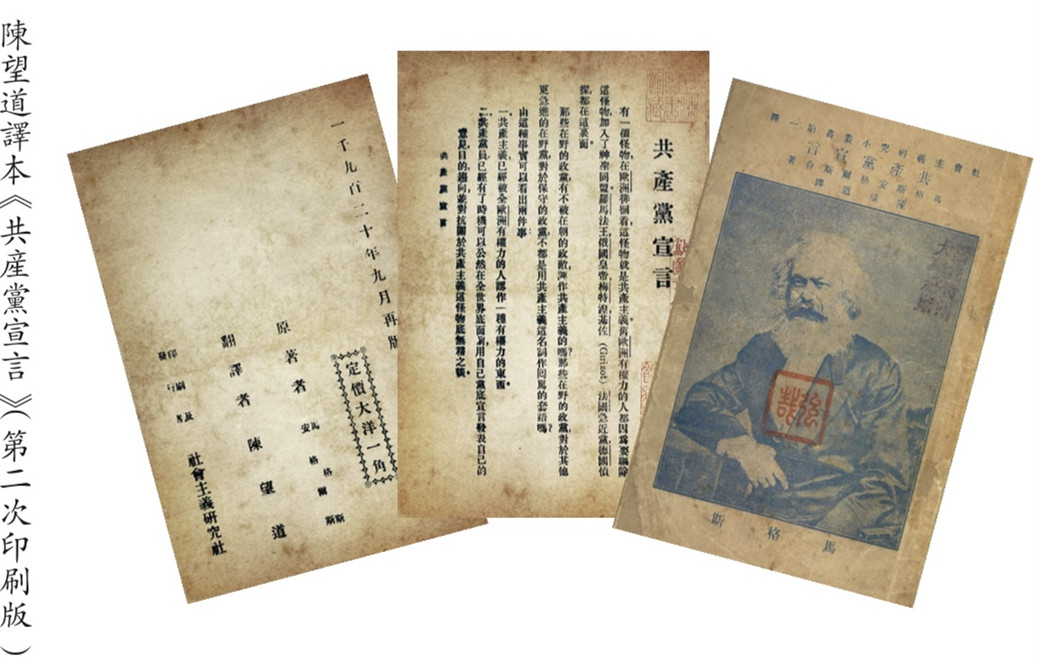 陳望道譯本《共産黨宣言》（第二次印刷版）
社會主義研究小叢書第一種
共產黨宣言
馬格斯 安格爾斯 合著
陳望道譯
馬格斯
共產黨宣言
有一個怪物,在歐洲徘徊着,這怪物就是共產主義。舊歐洲有權力的人都因爲要驅除
這怪物,加入了神聖同盟。羅馬法王,俄國皇帝,梅特湼,基佐(Guizot),法國急進黨,德國偵
探,都在這裏面。
那些在野的政黨,有不被在朝的政敵,誣作共產主義的嗎?那些在野的政黨,對於其他
更急進的在野黨,對於保守的政黨,不都是用共產主義這名詞作回罵的套語嗎?
由這種事實可以看出兩件事:
一、共產主義,已經被全歐洲有權力的人認作一種有權力的東西。
二、共產黨員,已經有了時機可以公然在全世界底面前,用自己黨底宣言發表自己的
意見,目的,趨向,並對抗關於共產主義這怪物底無稽之談。
共產黨宣言
一千九百二十年九月再版
定價大洋一角
原著者 馬格斯 安格爾斯
翻譯者 陳望道
印刷及發行者 社會主義研究社